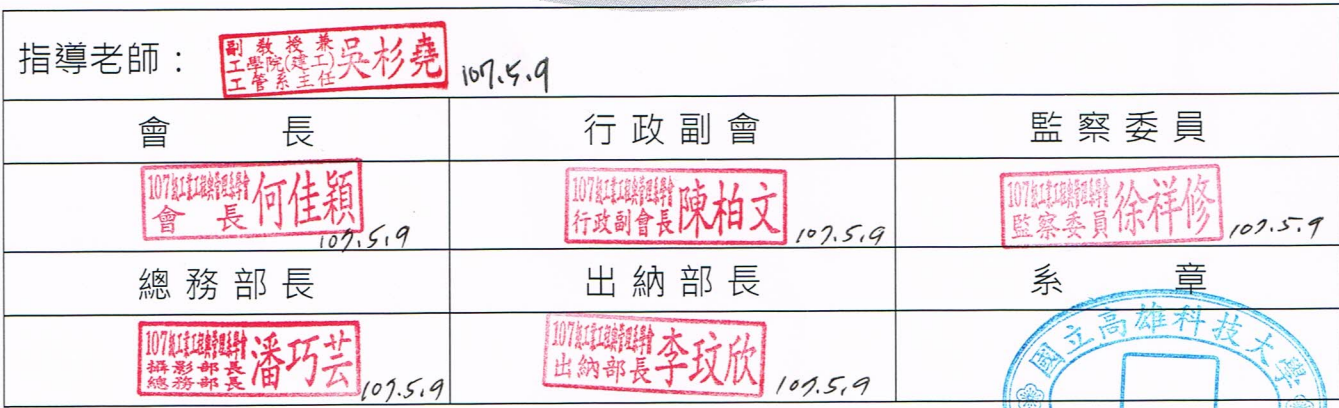 指導老師：
副教授兼
工學院(建工)
工管系主任
吳杉堯
107.5.9
會長
行政副會
監察委員
107級工業工程與管理系學會
會長
何佳穎
107.5.9
107級工業工程與管理系學會
行政副會長
陳柏文
107.5.9
107級工業工程與管理系學會
監察委員
徐祥修
107.5.9
總務部長
出納部長
系章
107級工業工程與管理系學會
攝影部長
總務部長
潘巧芸
107.5.9
107級工業工程與管理系學會
出納部長
李玟欣
107.5.9
國立高雄科技大學